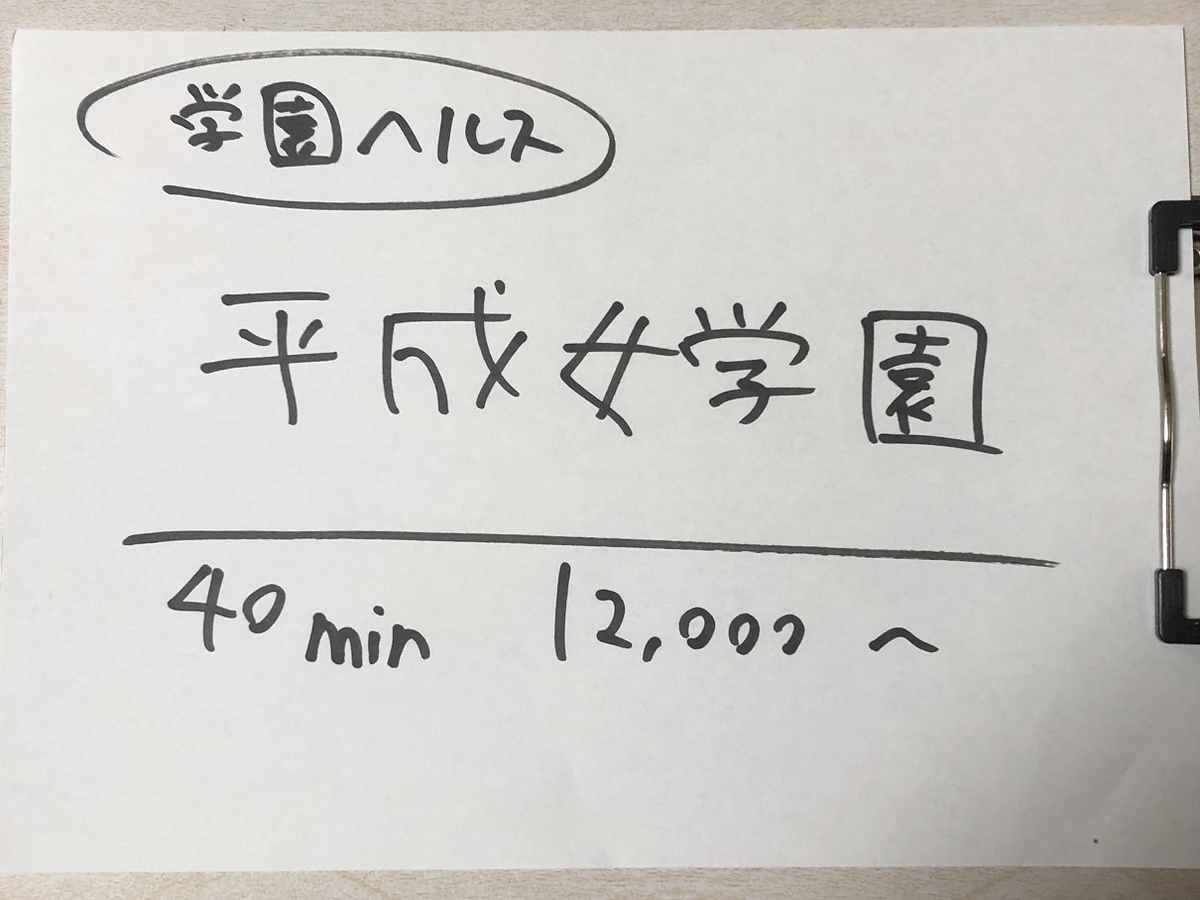 学園ヘルス
平成女学園
40min 12,000~